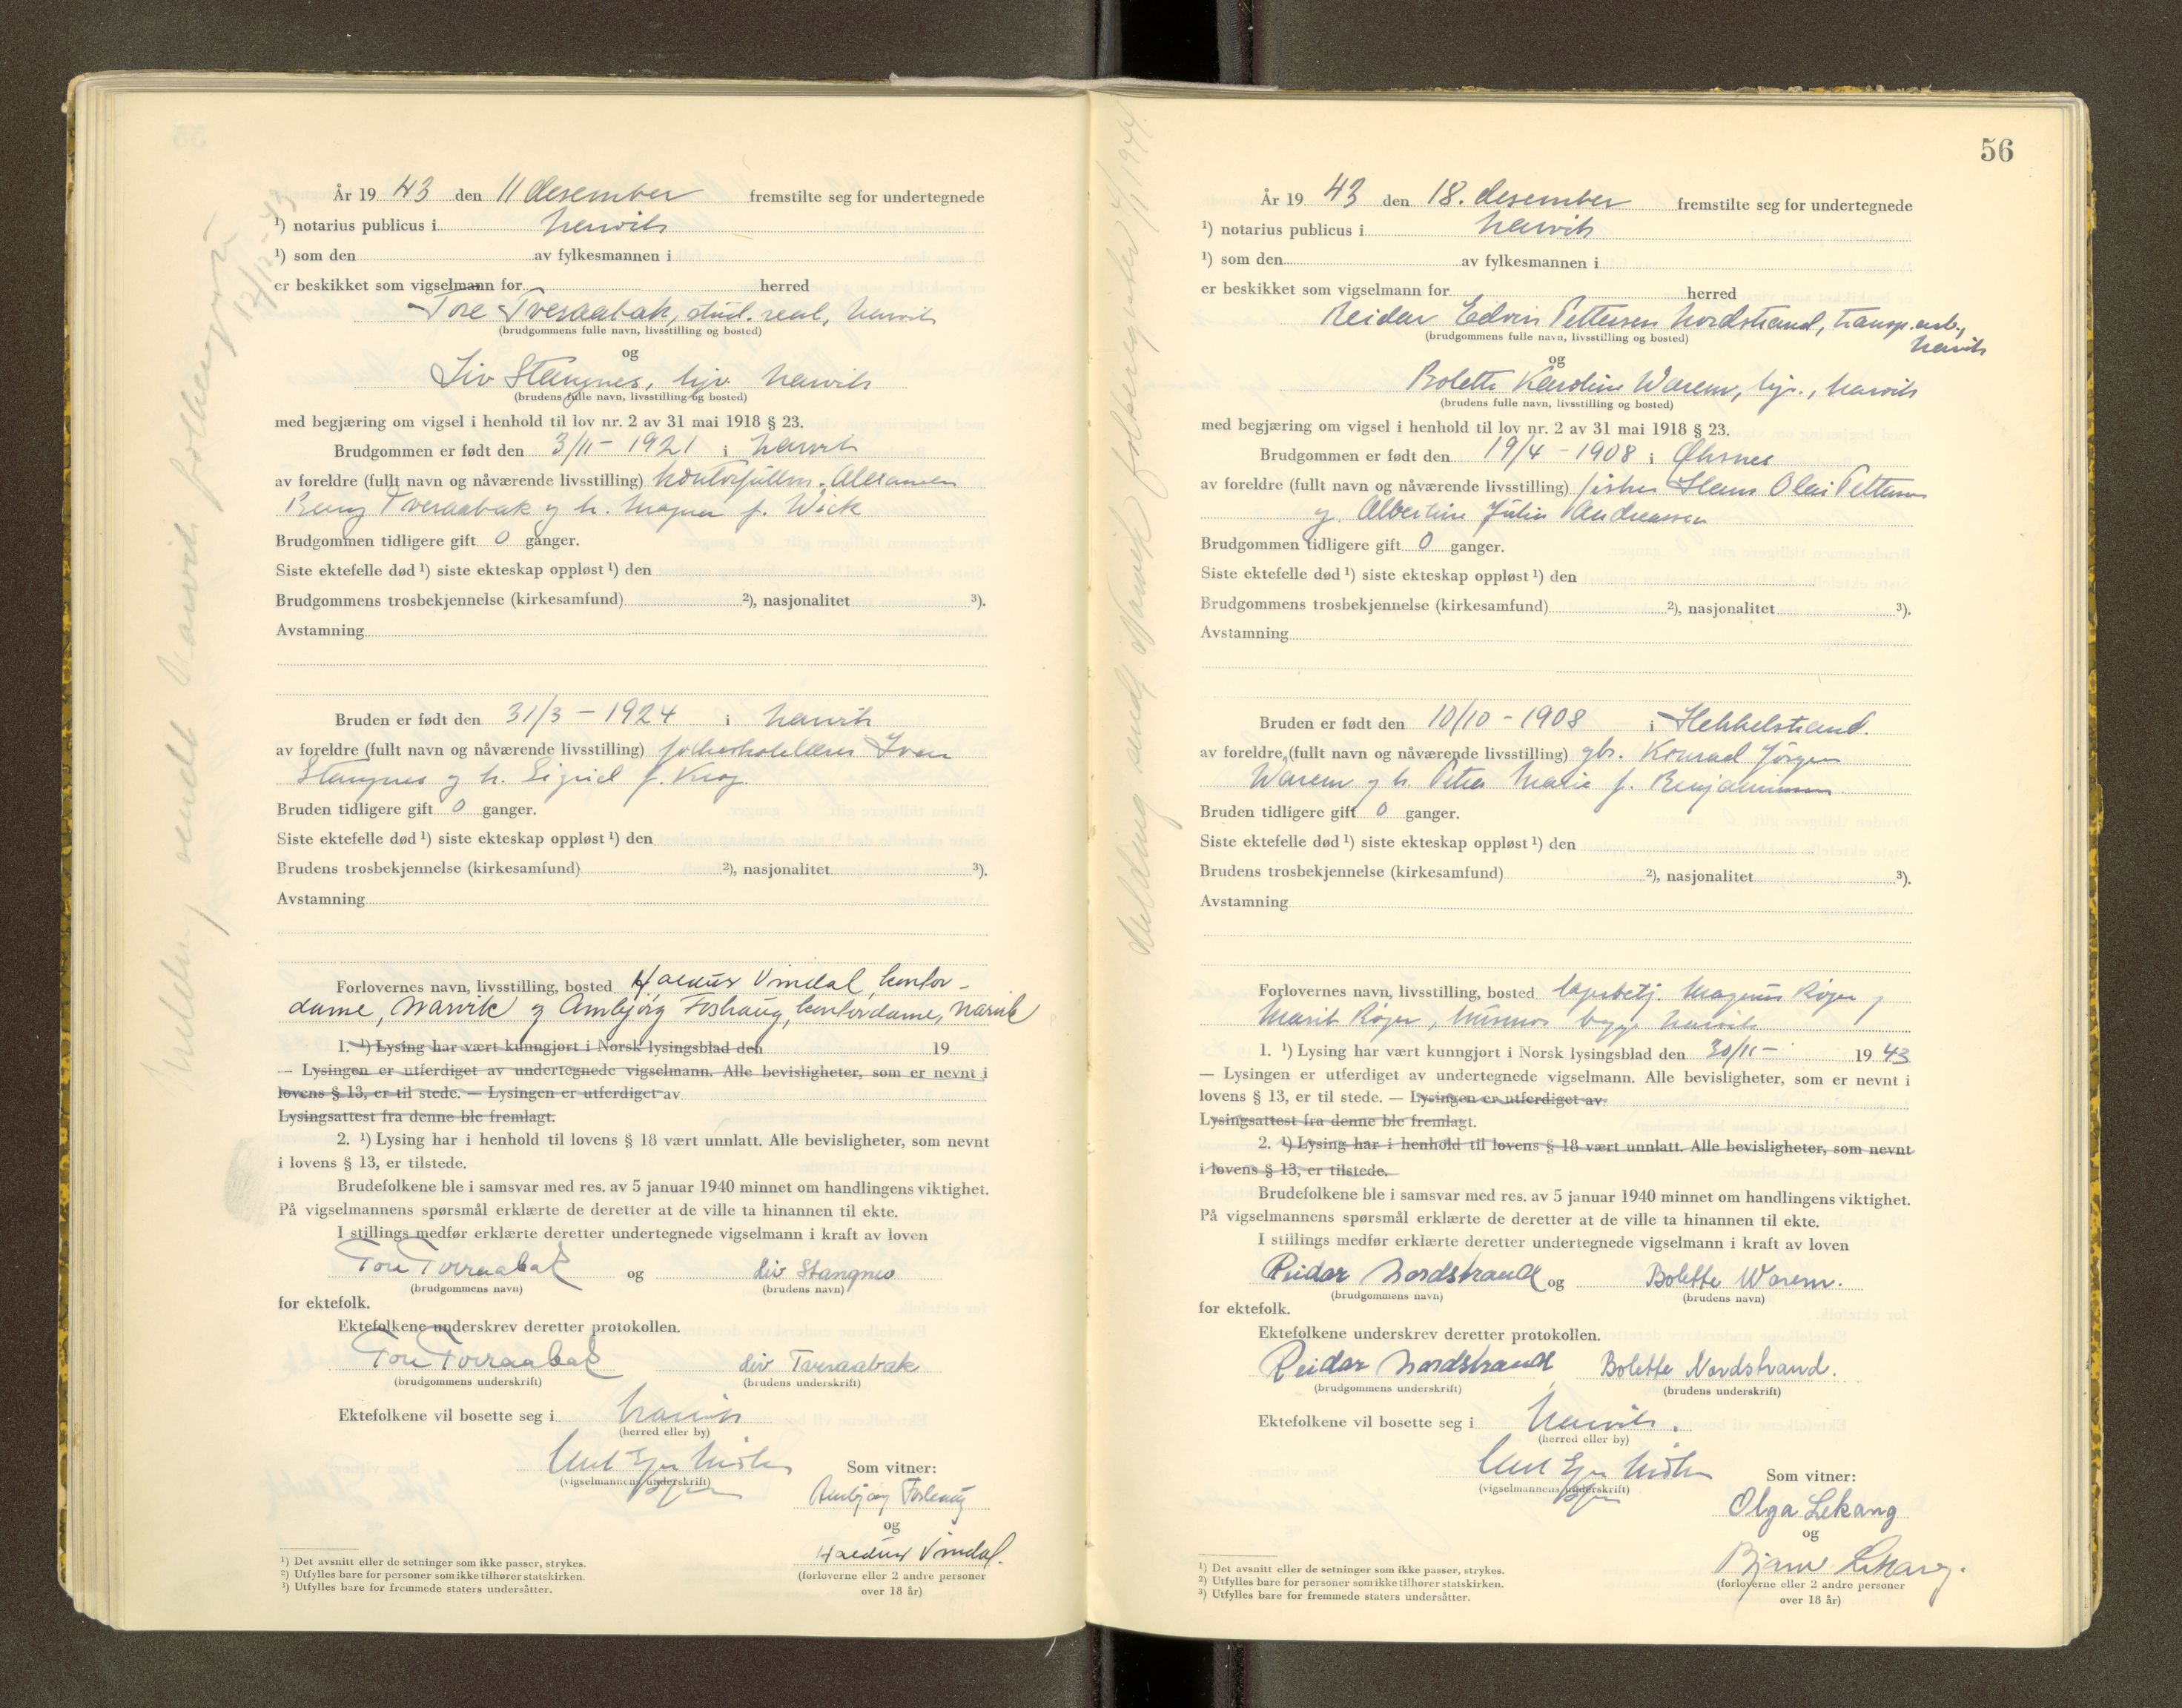 År 19 43 den 11 desember fremstilte seg for undertegnede
¹) notarius publicus i Narvik
¹) som den av fylkesmannen i
er beskikket som vigselmann for herred
Tore Tveraabak, stud. real, Narvik
(brudgommens fulle navn, livsstilling og bosted)
og
Liv Stangnes, hjv. Narvik
(brudens fulle navn, livsstilling og bosted)
med begjæring om vigsel i henhold til lov nr. 2 av 31 mai 1918 § 23.
Brudgommen er født den 3/11 - 1921 i Narvik
av foreldre (fullt navn og nåværende livsstilling) kontorfullm.
Tveraabak og h. Magna f. Wick
Brudgommen tidligere gift 0 ganger.
Siste ektefelle død ¹) siste ekteskap oppløst ¹) den
Brudgommens trosbekjennelse (kirkesamfund) ²), nasjonalitet ³).
Avstamning
Bruden er født den 31/3 - 1924 i Narvik
av foreldre (fullt navn og nåværende livsstilling) Ivar
Stangnes og h. Sigrid f. Krog.
Bruden tidligere gift 0 ganger.
Siste ektefelle død ¹) siste ekteskap oppløst ¹) den
Brudens trosbekjennelse (kirkesamfund) ²), nasjonalitet ³).
Avstamning
Forlovernes navn, livsstilling, bosted Haldur Vindal, kontor-
dame, Narvik og Annbjørg Foshaug, kontordame, Narvik
1. ¹) Lysing har vært kunngjort i Norsk lysingsblad den 19
— Lysingen er utferdiget av undertegnede vigselmann. Alle bevisligheter, som er nevnt i
lovens § 13, er til stede. — Lysingen er utferdiget av
Lysingsattest fra denne ble fremlagt.
2. ¹) Lysing har i henhold til lovens § 18 vært unnlatt. Alle bevisligheter, som nevnt
i lovens § 13, er tilstede.
Brudefolkene ble i samsvar med res. av 5 januar 1940 minnet om handlingens viktighet.
På vigselmannens spørsmål erklærte de deretter at de ville ta hinannen til ekte.
I stillings medfør erklærte deretter undertegnede vigselmann i kraft av loven
Tore Tveraabak og Liv Stangnes
(brudgommens navn) (brudens navn)
for ektefolk.
Ektefolkene underskrev deretter protokollen.
Tore Tveraabak Liv Tveraabak
(brudgommens underskrift) (brudens underskrift)
Ektefolkene vil bosette seg i Narvik
(herred eller by)
(vigselmannens underskrift)
Som vitner:
Annbjørg Foshaug
og
Haldur Vindal.
(forloverne eller 2 andre personer
over 18 år)
¹) Det avsnitt eller de setninger som ikke passer, strykes.
²) Utfylles bare for personer som ikke tilhører statskirken.
³) Utfylles bare for fremmede staters undersåtter.
Melding sendt Narvik folkeregister
12/12-43
56
År 19 43 den 18. desember fremstilte seg for undertegnede
¹) notarius publicus i Narvik
¹) som den av fylkesmannen i
er beskikket som vigselmann for herred
Reidar Edvin Pettersen Nordstrand, transp.arb.,
Narvik
(brudgommens fulle navn, livsstilling og bosted)
og
Bolette Karoline Warem, hjv., Narvik
(brudens fulle navn, livsstilling og bosted)
med begjæring om vigsel i henhold til lov nr. 2 av 31 mai 1918 § 23.
Brudgommen er født den 19/4 - 1908 i Øksnes
av foreldre (fullt navn og nåværende livsstilling) fisker Hans Olai Pettersen
og Albertine Julie Andreassen
Brudgommen tidligere gift 0 ganger.
Siste ektefelle død ¹) siste ekteskap oppløst ¹) den
Brudgommens trosbekjennelse (kirkesamfund) ²), nasjonalitet ³).
Avstamning
Bruden er født den 10/10 - 1908 i Hekkelstrand.
av foreldre (fullt navn og nåværende livsstilling) gbr. Konrad Jørgen
Warem og h. Petra Marie f. Benjaminsen
Bruden tidligere gift 0 ganger.
Siste ektefelle død ¹) siste ekteskap oppløst ¹) den
Brudens trosbekjennelse (kirkesamfund) ²), nasjonalitet ³).
Avstamning
Forlovernes navn, livsstilling, bosted Magnus Røger og
Marit Røger, husmor begge Narvik
1. ¹) Lysing har vært kunngjort i Norsk lysingsblad den 30/11 - 19 43
— Lysingen er utferdiget av undertegnede vigselmann. Alle bevisligheter, som er nevnt i
lovens § 13, er til stede. — Lysingen er utferdiget av
Lysingsattest fra denne ble fremlagt.
2. ¹) Lysing har i henhold til lovens § 18 vært unnlatt. Alle bevisligheter, som nevnt
i lovens § 13, er tilstede.
Brudefolkene ble i samsvar med res. av 5 januar 1940 minnet om handlingens viktighet.
På vigselmannens spørsmål erklærte de deretter at de ville ta hinannen til ekte.
I stillings medfør erklærte deretter undertegnede vigselmann i kraft av loven
Reidar Nordstrand og Bolette Warem.
(brudgommens navn) (brudens navn)
for ektefolk.
Ektefolkene underskrev deretter protokollen.
Reidar Nordstrand Bolette Nordstrand.
(brudgommens underskrift) (brudens underskrift)
Ektefolkene vil bosette seg i Narvik.
(herred eller by)
(vigselmannens underskrift)
Som vitner:
Olga Lekang
og
Bjarne Lekang.
(forloverne eller 2 andre personer
over 18 år)
¹) Det avsnitt eller de setninger som ikke passer, strykes.
²) Utfylles bare for personer som ikke tilhører statskirken.
³) Utfylles bare for fremmede staters undersåtter.
Melding sendt Narvik folkeregister 1944.